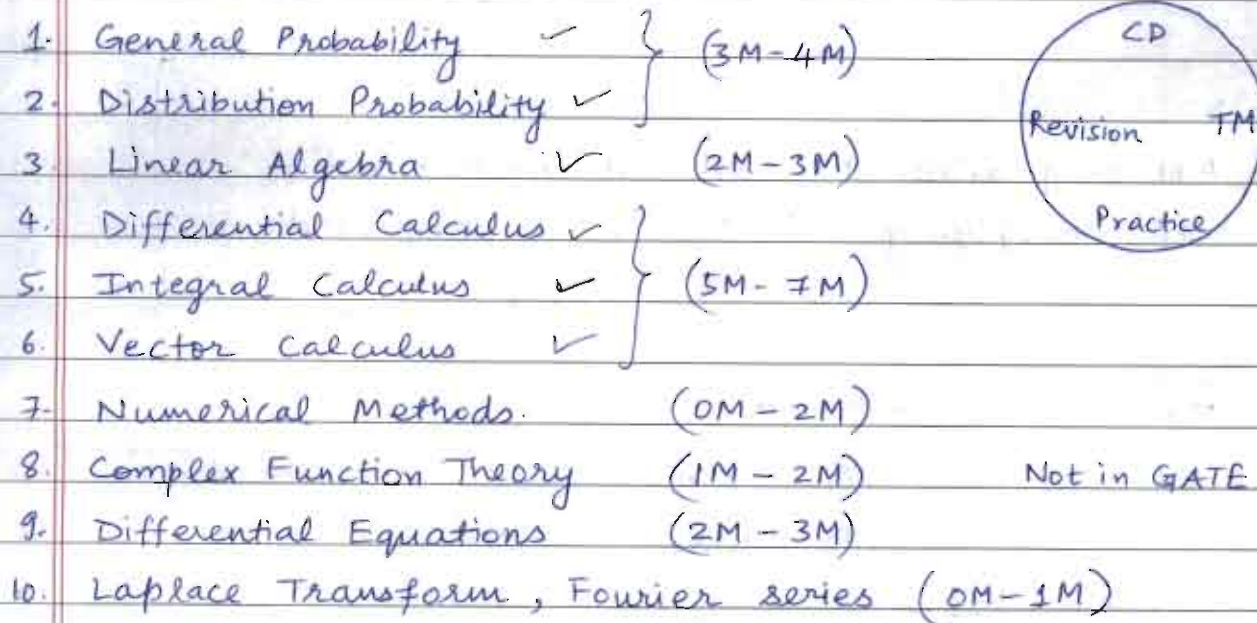 1. General Probability ✓ } (3M-4M)
2. Distribution Probability ✓
3 Linear Algebra ✓ (2M-3M)
4. Differential Calculus ✓
5. Integral Calculus ✓ } (5M-7M)
6. Vector Calculus ✓
7. Numerical Methods. (0M-2M)
8. Complex Function Theory (1M-2M) Not in GATE
9. Differential Equations (2M-3M)
10. Laplace Transform, Fourier series (0M-1M)
CD
Revision TM
Practice